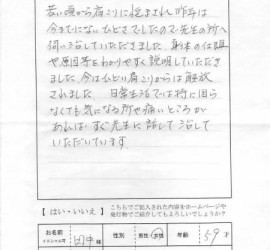 若い頃から肩こりに悩まされ昨年は
今までにないひどさでしたので先生の所へ
伺い治していただきました。身体の仕組
や原因等をわかりやすく説明していただき
ました。今はひどい肩こりからは解放
されました。日常生活では特に困ら
なくても気になる所や痛いところが
あれば、すぐ先生に話して治して
いただいています。
【はい・いいえ】
こちらでご記入された内容をホームページや
発行物でご紹介してもよろしいでしょうか？
お名前
イニシャル可
田中 様
性別
男性・女性
年齢
59 才